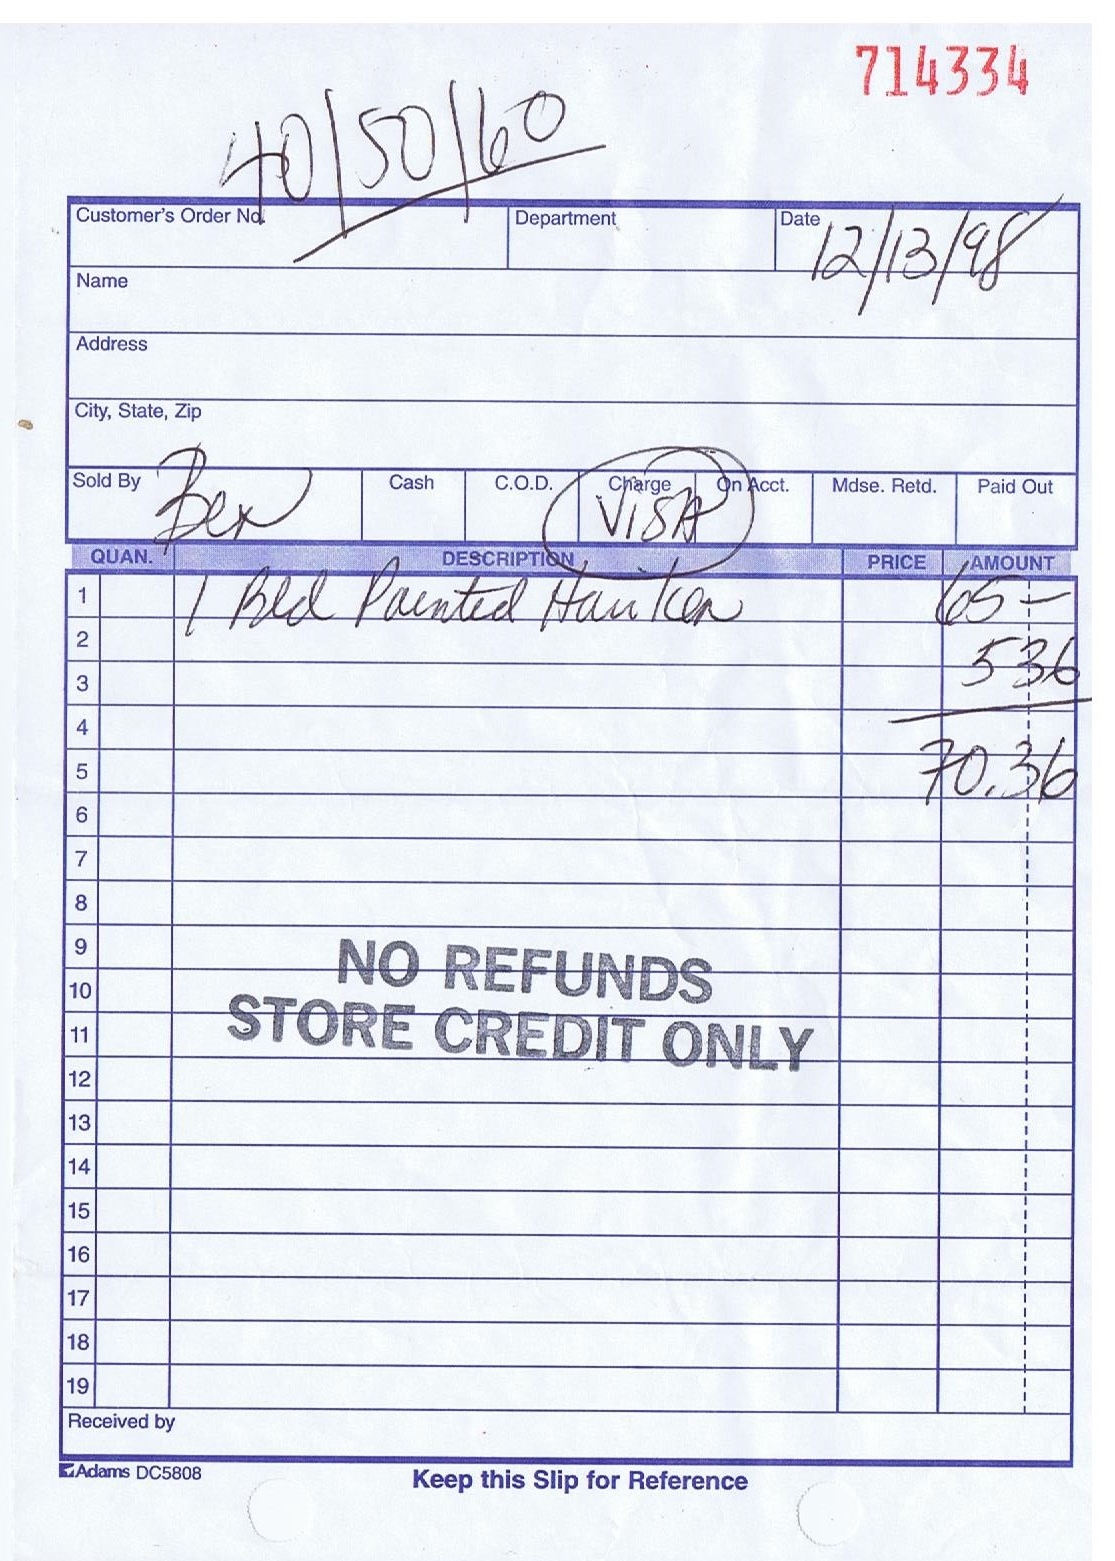 714334
40/50/60
Customer's Order No. Department Date 12/13/98
Name
Address
City, State, Zip
Sold By Ben Cash C.O.D. Charge VISA On Acct. Mdse. Retd. Paid Out
QUAN. DESCRIPTION PRICE AMOUNT
1 1 Bld Painted 65 —
2
3 5 36
4
5 70.36
6
7
8
9
NO REFUNDS
10
11
STORE CREDIT ONLY
12
13
14
15
16
17
18
19
Received by
Adams DC5808 Keep this Slip for Reference